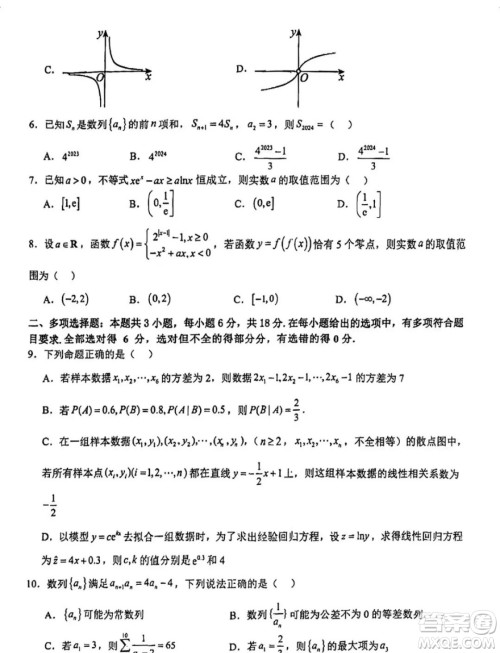 y y
C. O x D. O x
6. 已知 Sₙ 是数列{aₙ}的前 n 项和, Sₙ₊₁=4Sₙ, a₂=3, 则 S₂₀₂₄=( )
A. 4²⁰²³ B. 4²⁰²⁴ C. (4²⁰²³-1)/3 D. (4²⁰²⁴-1)/3
7. 已知 a>0, 不等式 xeˣ-ax≥alnx 恒成立, 则实数 a 的取值范围为( )
A. [1,e] B. (0,1/e] C. (0,e] D. (1/e,1]
8. 设 a∈R, 函数 f(x)={2^|x-1|-1,x≥0 -x²+ax,x<0, 若函数 y=f(f(x)) 恰有 5 个零点, 则实数 a 的取值范
围为( )
A. (-2,2) B. (0,2) C. [-1,0) D. (-∞,-2)
二、多项选择题: 本题共 3 小题, 每小题 6 分, 共 18 分. 在每小题给出的选项中, 有多项符合题
目要求. 全部选对的得 6 分, 部分选对的得部分分, 有选错的得 0 分.
9. 下列命题正确的是( )
A. 若样本数据 x₁,x₂,⋯,x₆ 的方差为 2, 则数据 2x₁-1,2x₂-1,⋯,2x₆-1 的方差为 8
B. 若 P(A)=0.6,P(B)=0.8,P(A|B)=0.5, 则 P(B|A)=2/3.
C. 在一组样本数据 (x₁,y₁),(x₂,y₂),⋯,(xₙ,yₙ),(n≥2, x₁,x₂,⋯,xₙ 不全相等) 的散点图中,
若所有样本点 (xᵢ,yᵢ)(i=1,2,⋯,n) 都在直线 y=-1/2x+1 上, 则这组样本数据的线性相关系数为
-1/2
D. 以模型 y=ceᵏˣ 去拟合一组数据时, 为了求出经验回归方程, 设 z=lny, 求得线性回归方程
为 ẑ=4x+0.3, 则 c,k 的值分别是 e⁰·³ 和 4
10. 数列{aₙ}满足 aₙ₊₁aₙ=4aₙ-4, 下列说法正确的是( )
A. {aₙ}可能为常数列 B. 数列{1/aₙ}可能为公差不为 0 的等差数列
C. 若 a₁=3, 则 ∑¹⁰ =65 D. 若 a₁=, 则{aₙ}的最大项为 a₃